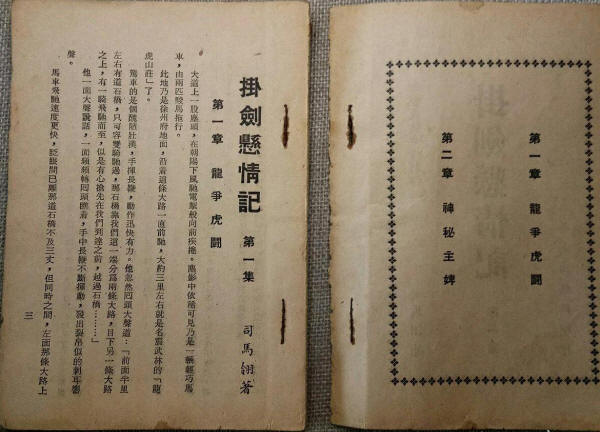 第一章 龍爭虎鬪
第二章 神秘主婢
掛劍懸情記 第一集 司馬翎著
第一章 龍爭虎鬪
大道上一股塵頭，在朝陽下風馳電掣般向前疾捲。塵影中依稀可見乃是一輛輕巧馬
車，由兩匹駿馬拖行。
此地乃是徐州府地面，沿着這條大路一直前馳，大約三里左右就是名震武林的「龍
虎山莊」了。
駕車的是個醜陋壯漢，手揮長鞭，動作迅快有力。他忽然囘頭大聲道：「前面半里
左右有道石橋，只可容雙騎馳過，那石橋靠我們這一端分爲兩條大路，目下另一條大路
之上，有一騎飛馳而至，似是有心搶先在我們到達之前，越過石橋……」
他一面大聲說話，一面頻頻轉囘頭瞧着，手中長鞭不斷揮動，發出裂帛似的刺耳響
聲。
馬車飛馳速度更快，眨眼間已離那道石橋不及三丈，但同時之間，左面那條大路上
三